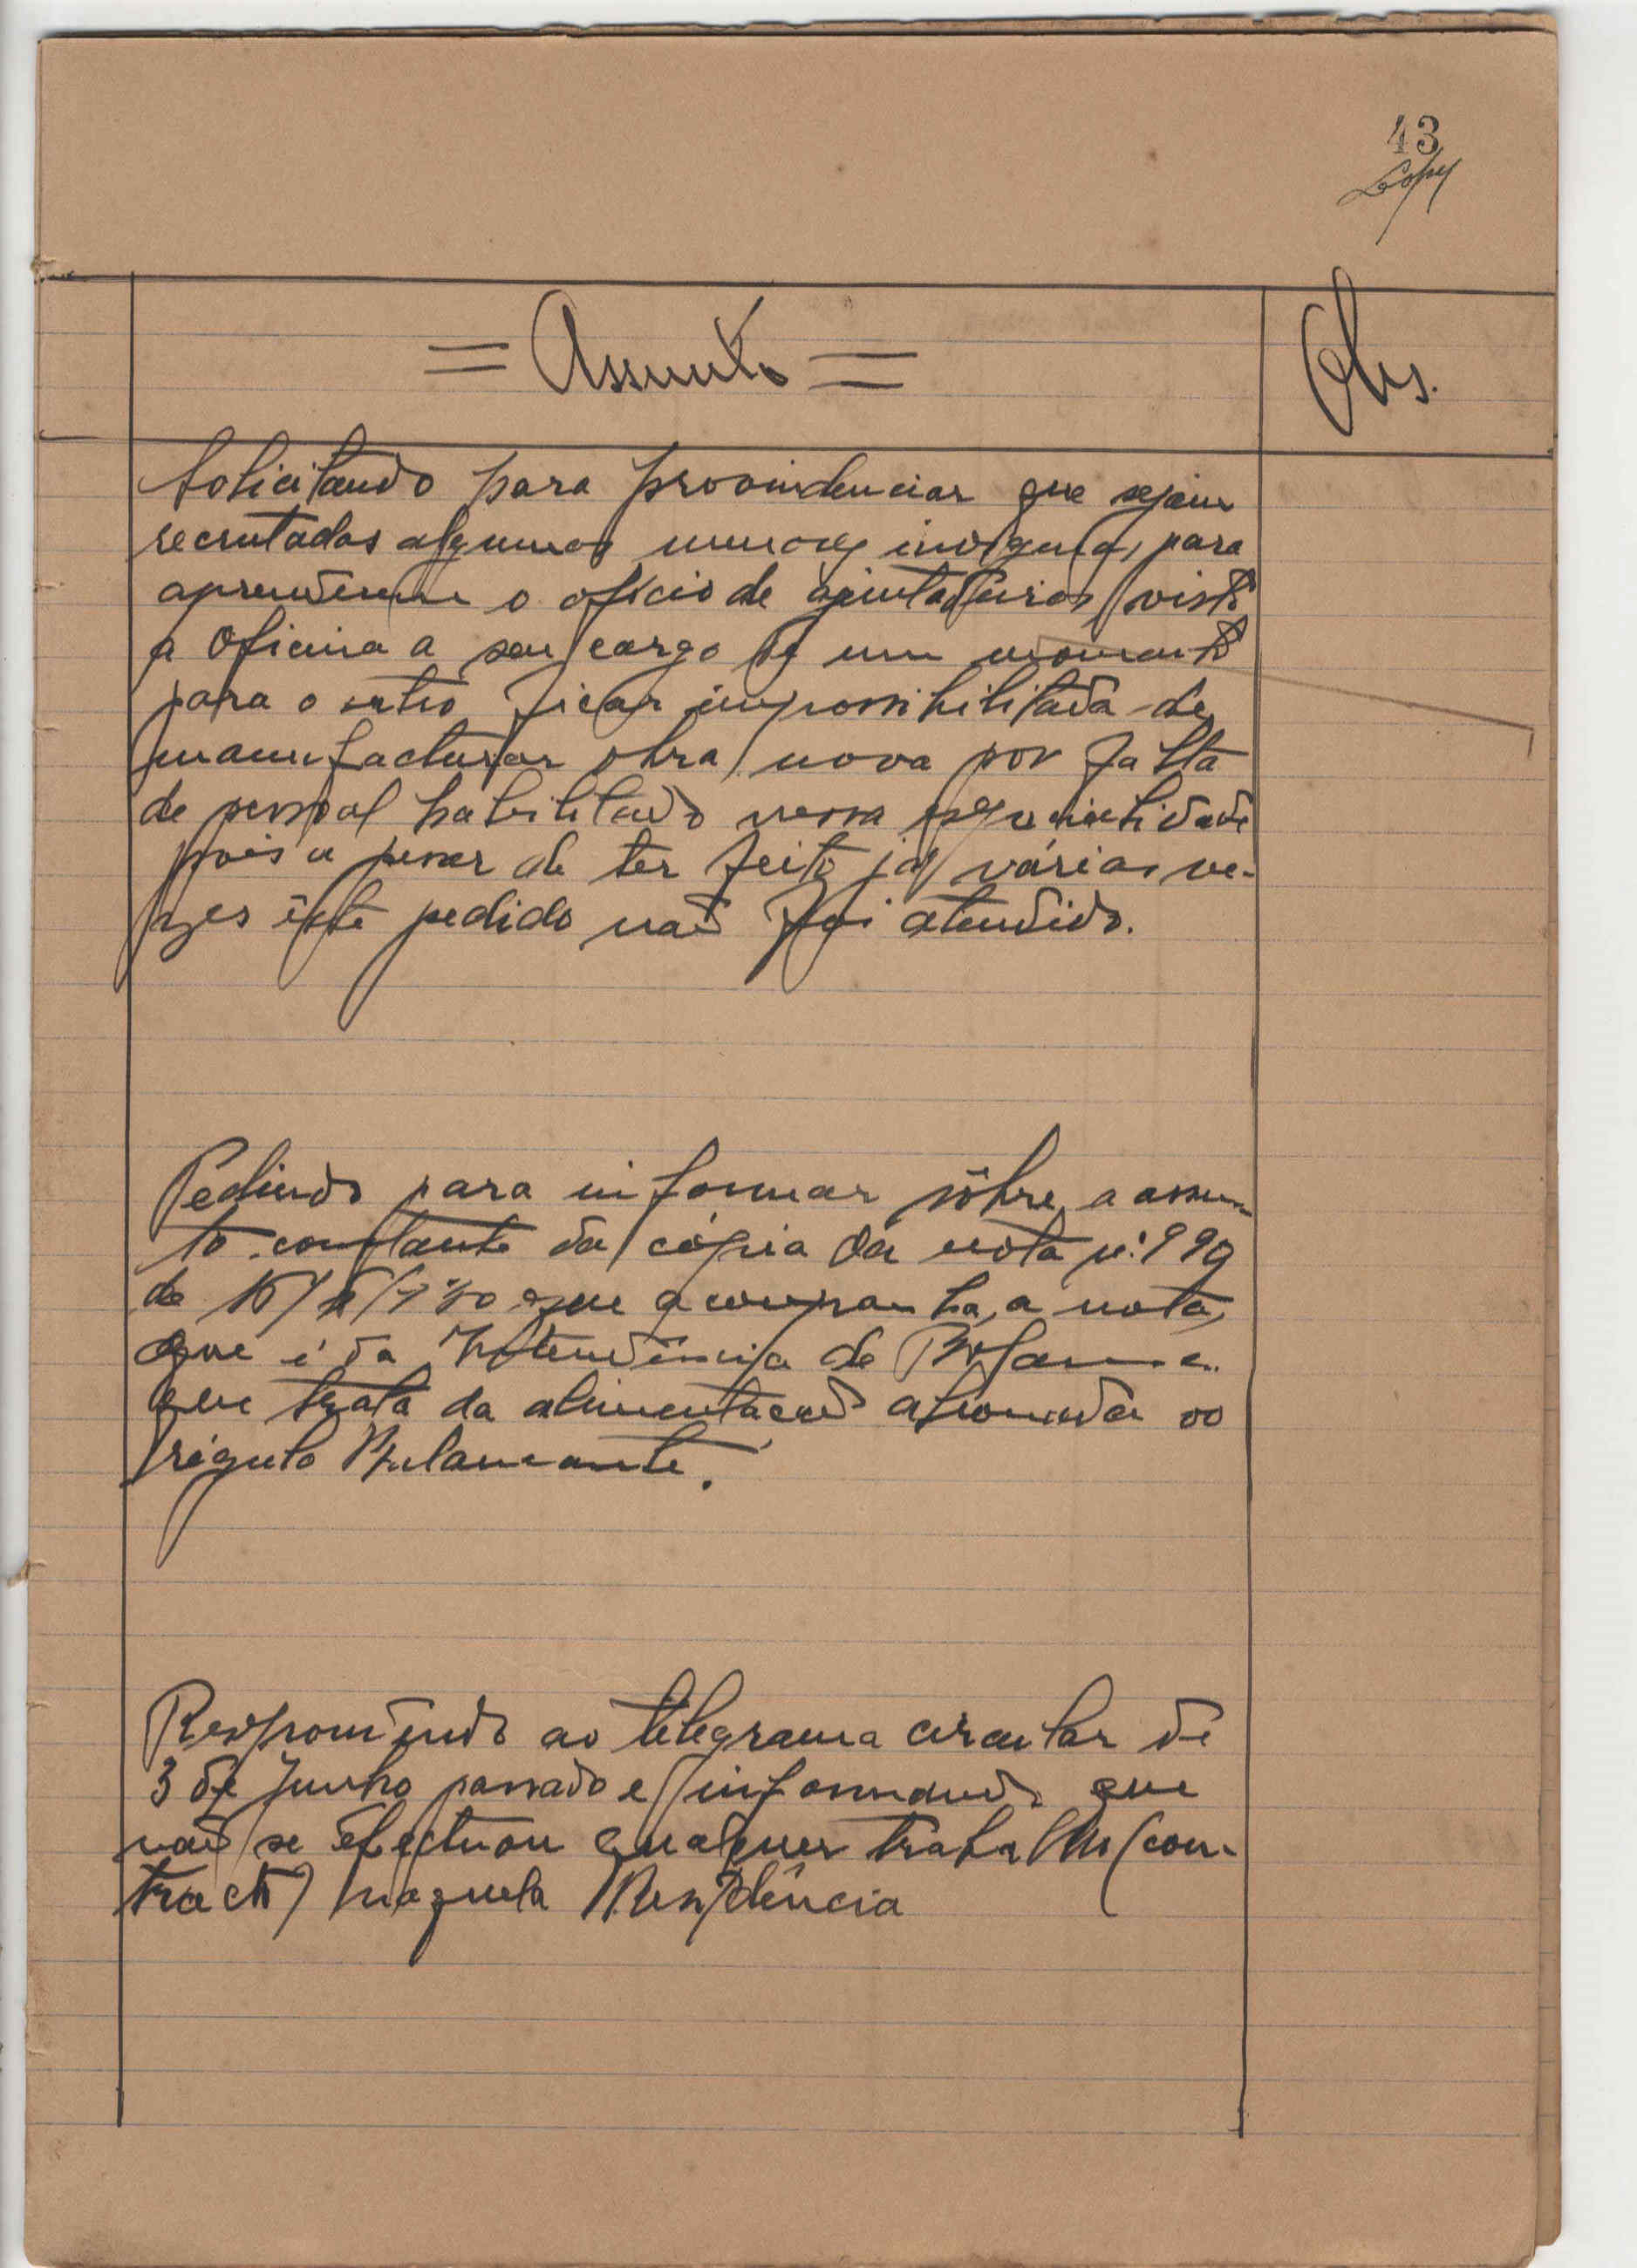 43
= Assunto =
Obs.
Solicitando para provindenciar que sejam
recrutados algumas menores indígenas, para
aprenderem o ofício de ajuntadeiras, visto
a Oficina a seu cargo de um momento
para o outro ficar impossibilitada de
manufacturar obra nova por falta
de pessoal habilitado nessa especialidade
pois a pesar de ter feito já várias ve-
zes êste pedido não foi atendido.
Pedindo para informar sôbre o assun-
to constante da cópia da nota nº 990
de que acompanha, a nota,
que é da Intendência de
que trata da alimentação abonada ao
régulo
Respondendo ao telegrama circular de
3 de Junho passado e informando que
não se efectuou qualquer trabalho (con-
tracto) naquela Residência